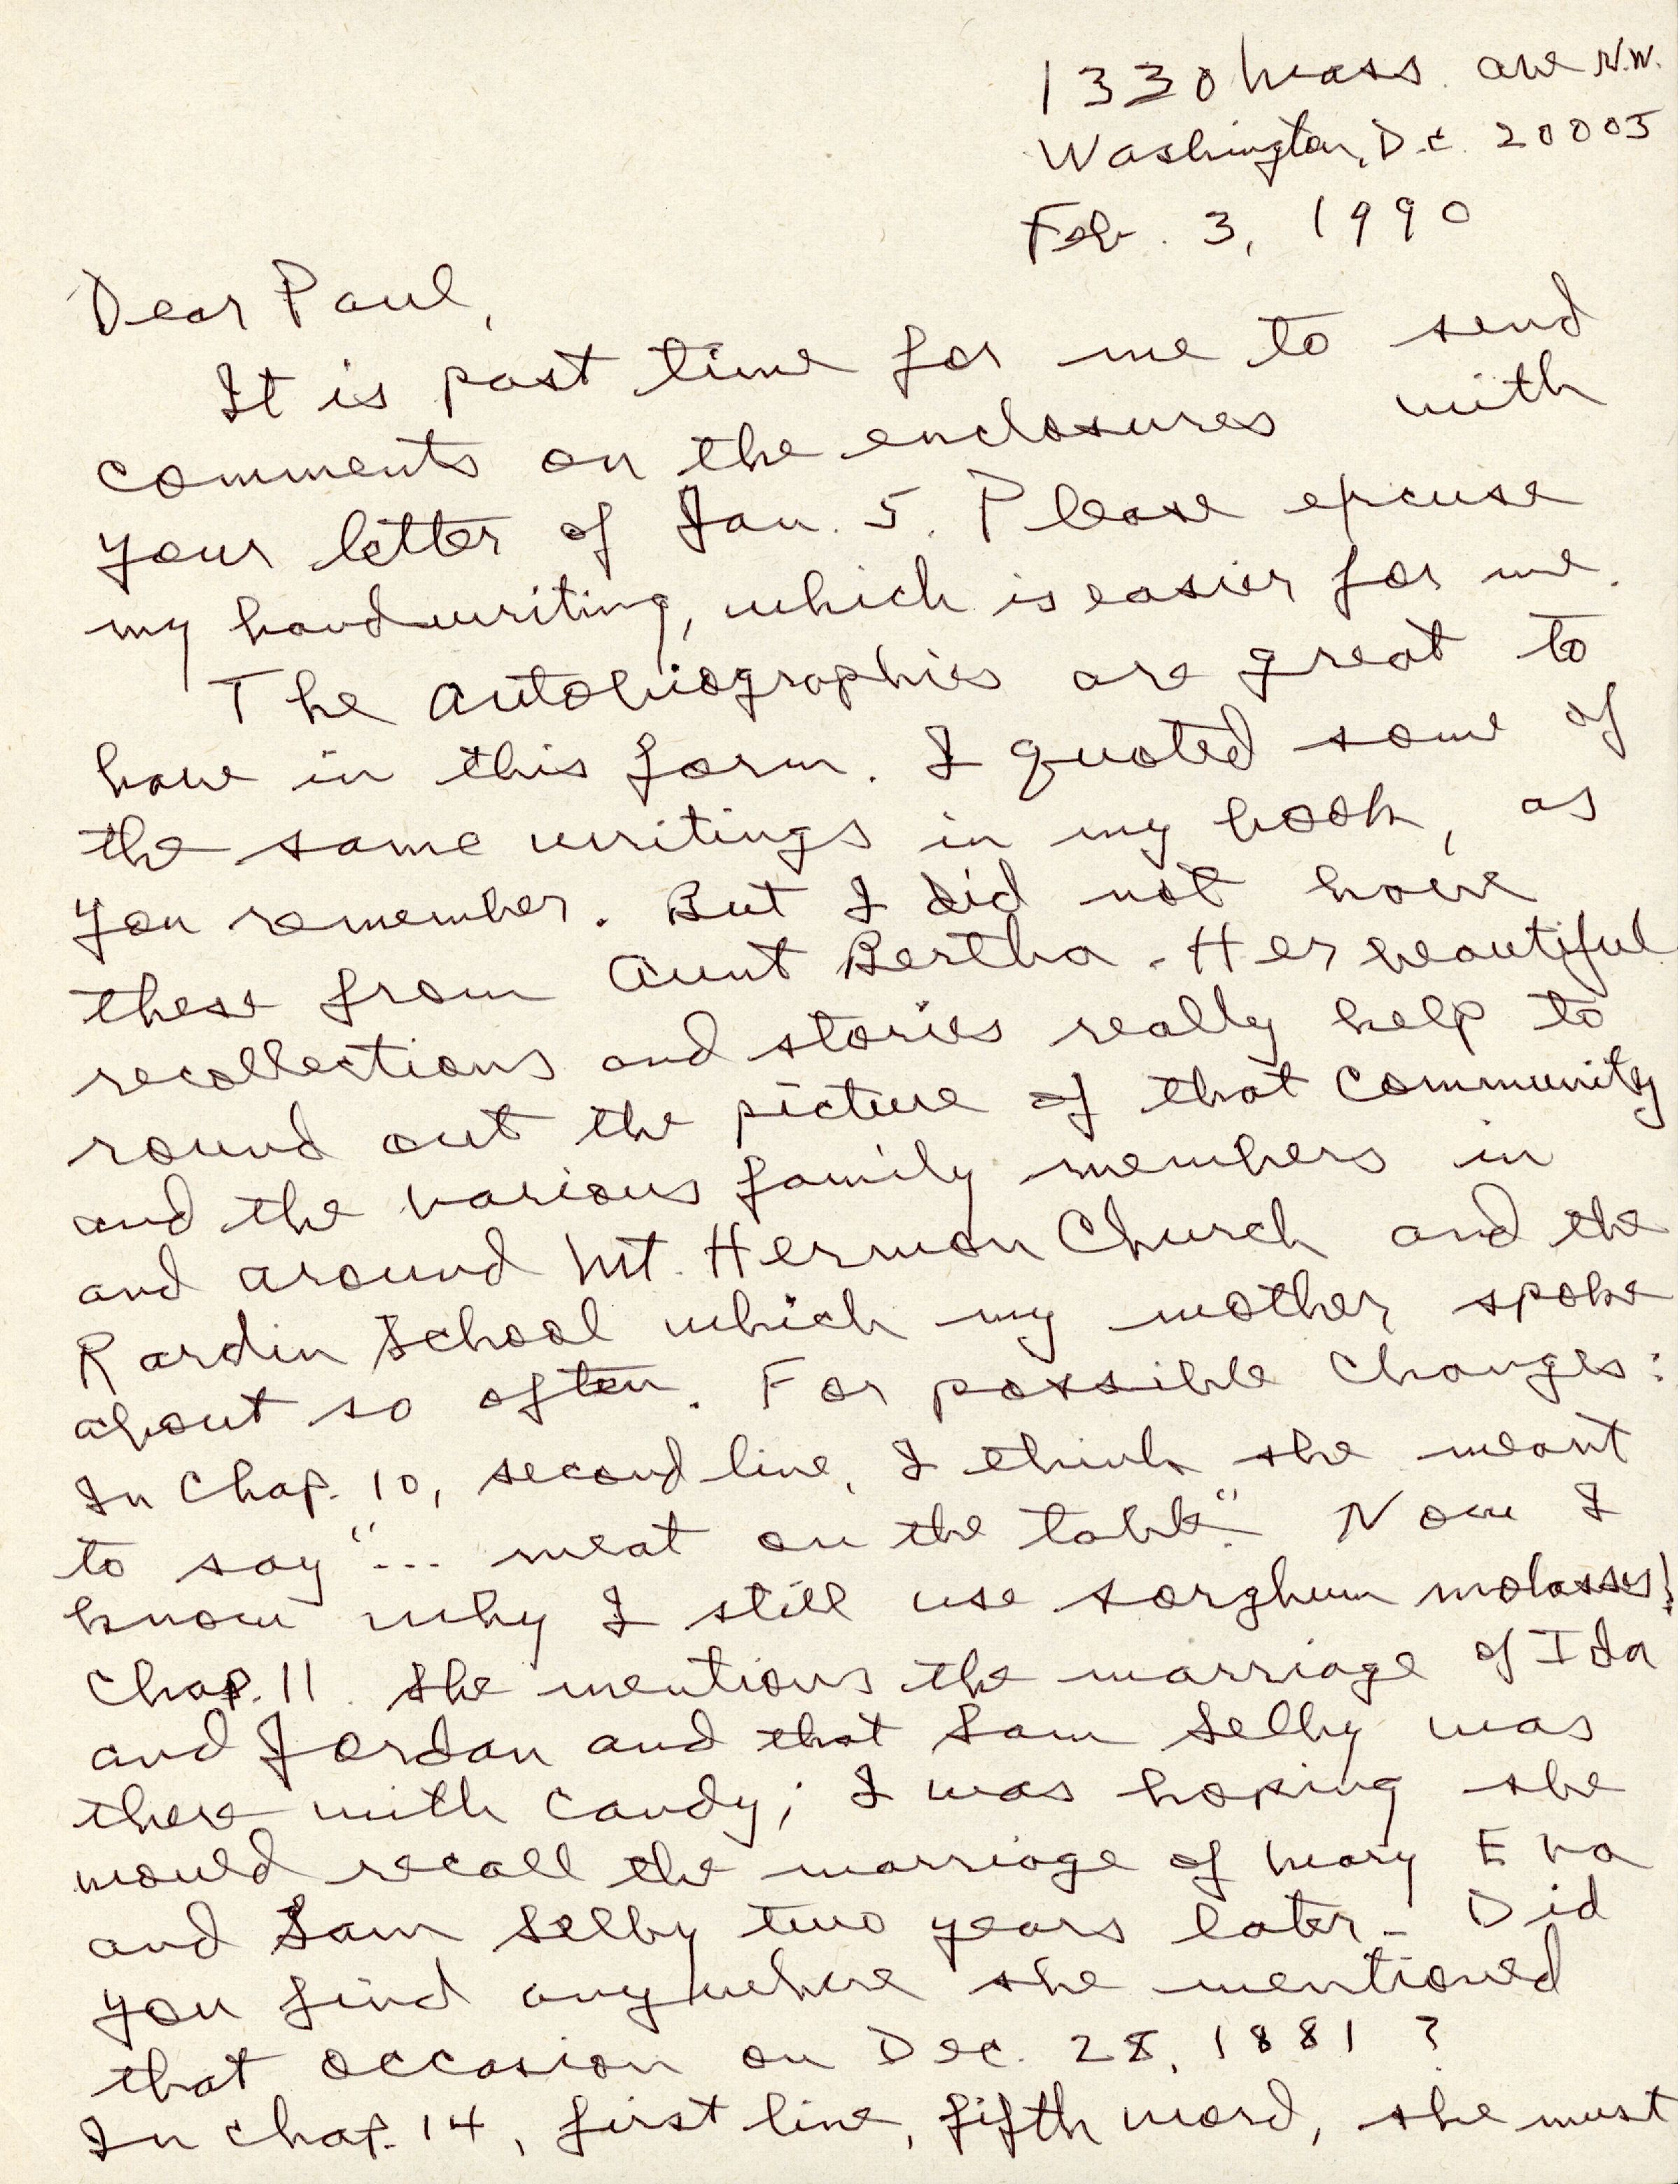 1330 Mass. Ave N.W.
Washington, D.C. 20005
Feb. 3, 1990
Dear Paul,
It is past time for me to send
comments on the enclosures with
your letter of Jan. 5. Please excuse
my handwriting, which is easier for me.
The autobiographies are great to
have in this form. I quoted some of
the same writings in my book, as
you remember. But I did not have
these from Aunt Bertha. Her beautiful
recollections and stories really help to
round out the picture of that community
and the various family members in
and around Mt. Hermon Church and the
Rardin School which my mother spoke
about so often. For possible changes:
In Chap. 10, second line, I think she meant
to say "... meat on the table". Now I
know why I still use sorghum molasses!
Chap. 11. She mentions the marriage of Ida
and Jordan and that Sam Selby was
there with candy; I was hoping she
would recall the marriage of Mary Eva
and Sam Selby two years later - Did
you find anywhere she mentioned
that occasion on Dec. 28, 1881?
In Chap. 14, first line, fifth word, she must